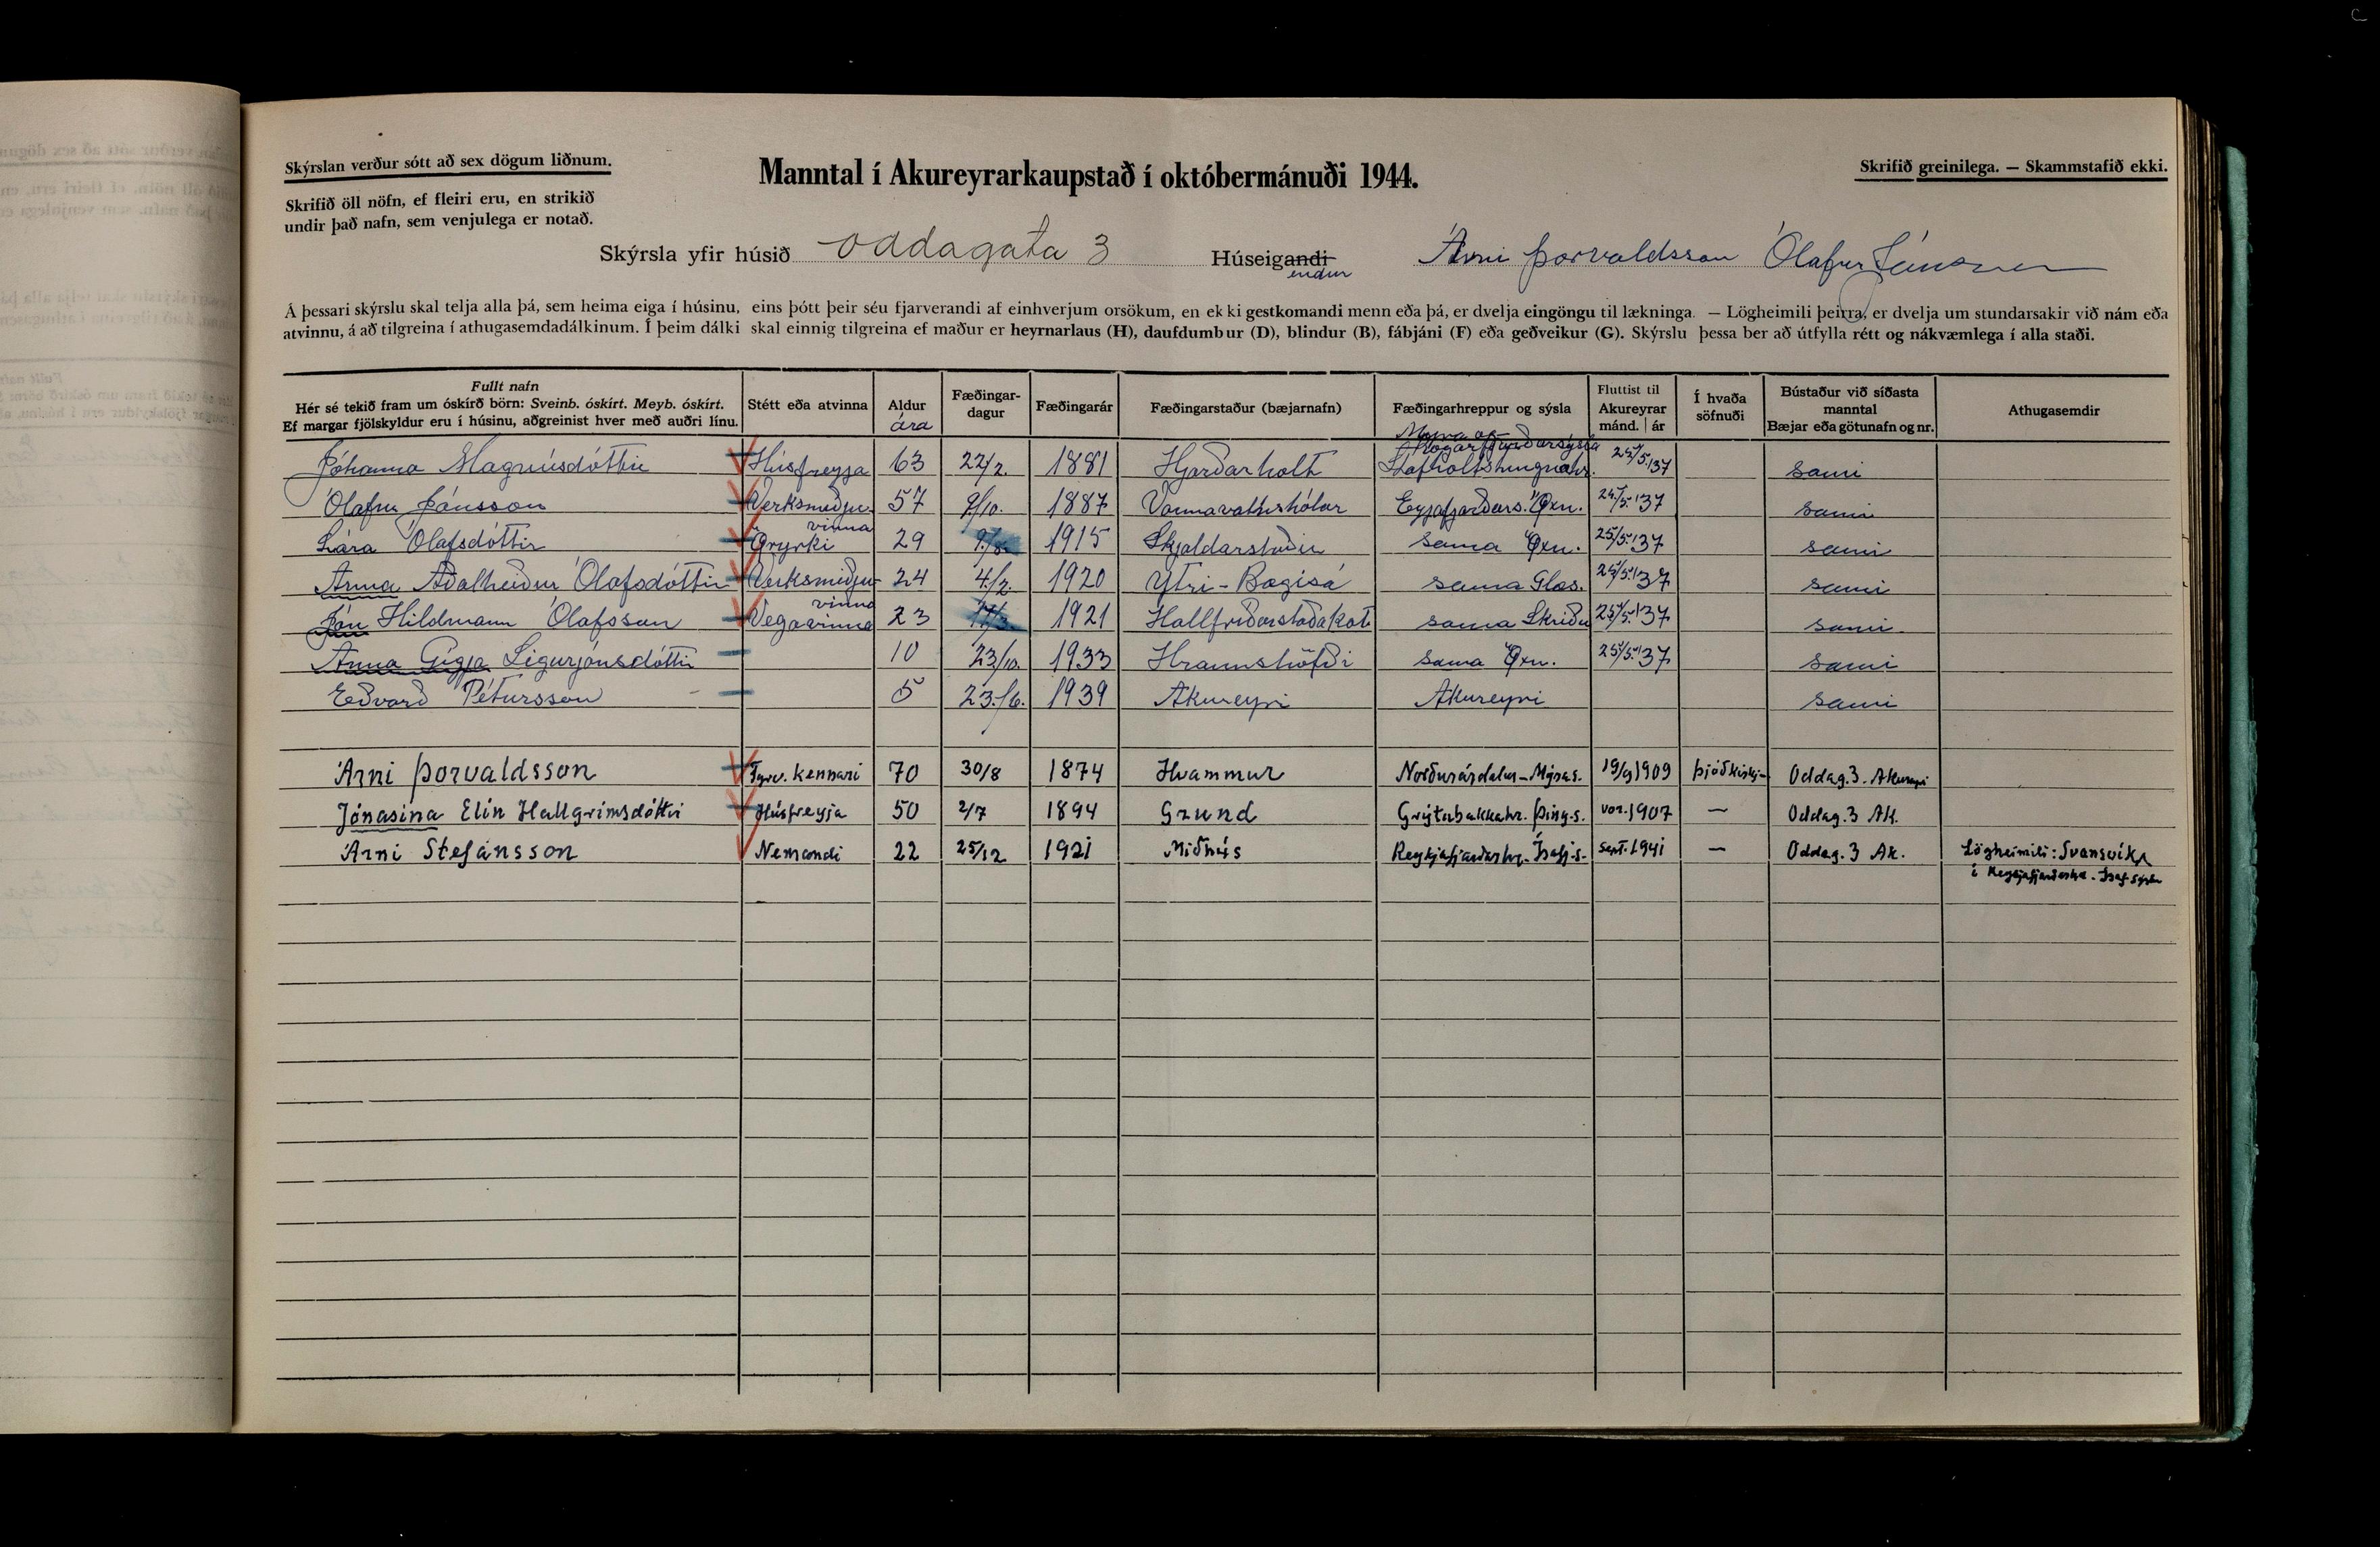 Skýrslan verður sótt að sex dögum liðnum.
Manntal í Akureyrarkaupstað í októbermánuði 1944.
Skrifið greinilega. — Skammstafið ekki.
Skrifið öll nöfn, ef fleiri eru, en strikið
undir það nafn, sem venjulega er notað.
Skýrsla yfir húsið Oddagata 3 Húseigandi Árni Þorvaldsson Ólafur Jónsson
endur
Á þessari skýrslu skal telja alla þá, sem heima eiga í húsinu, eins þótt þeir séu fjarverandi af einhverjum orsökum, en ek ki gestkomandi menn eða þá, er dvelja eingöngu til lækninga. — Lögheimili þeirra, er dvelja um stundarsakir við nám eða
atvinnu, á að tilgreina í athugasemdadálkinum. Í þeim dálki skal einnig tilgreina ef maður er heyrnarlaus (H), daufdumbur (D), blindur (B), fábjáni (F) eða geðveikur (G). Skýrslu þessa ber að útfylla rétt og nákvæmlega í alla staði.
Fullt nafn
Hér sé tekið fram um óskírð börn: Sveinb. óskírt. Meyb. óskírt.
Ef margar fjölskyldur eru í húsinu, aðgreinist hver með auðri línu.
Stétt eða atvinna
Aldur
ára
Fæðingar-
dagur
Fæðingarár
Fæðingarstaður (bæjarnafn)
Fæðingarhreppur og sýsla
Fluttist til
Akureyrar
mánd. ár
Í hvaða
söfnuði
Bústaður við síðasta
manntal
Bæjar eða götunafn og nr.
Athugasemdir
Mýra og
Borgarfjarðarsýsla
Jóhanna Magnúsdóttir Húsfreyja 63 22/2. 1881 Hjarðarholt Stafholtstungnahr. 25/5.'37 sami
Ólafur Jónsson Verksmiðju- 57 9/10. 1887 Vannavatnshólar Eyjafjarðars. Öxn. 25/5.'37 sami
vinna
Lára Ólafsdóttir Öryrki 29 1915 Skjaldarstaðir sama Öxn. 25/5.'37 sami
Anna Aðalheiður Ólafsdóttir Verksmiðju- 24 4/2. 1920 Ytri-Bægisá sama Glæs. 25/5.'37 sami
vinna
Jón Hildmann Ólafsson Vegavinna 23 1921 Hallfríðarstaðakot sama Skriðu 25/5.'37 sami
Anna Gígja Sigurjónsdóttir 10 23/10. 1933 Hraunshöfði sama Öxn. 25/5.'37 sami
Eðvarð Pétursson 5 23./6. 1939 Akureyri Akureyri sami
Árni Þorvaldsson Fyrv. kennari 70 30/8 1874 Hvammur Norðurárdalur-Mýras. 19/9 1909 Þjóðkirkj- Oddag. 3. Akureyri
Jónasína Elín Hallgrímsdóttir Húsfreyja 50 2/7 1894 Grund Grýtubakkahr. Þing.s. vor. 1907 — Oddag. 3 Ak.
Árni Stefánsson Nemandi 22 25/12 1921 Miðhús Reykjafjarðarhr. Ísafj.s. sept. 1941 — Oddag. 3 Ak. Lögheimili: Svansvík
í Reykjafjarðarhr. Ísaf.sýslu